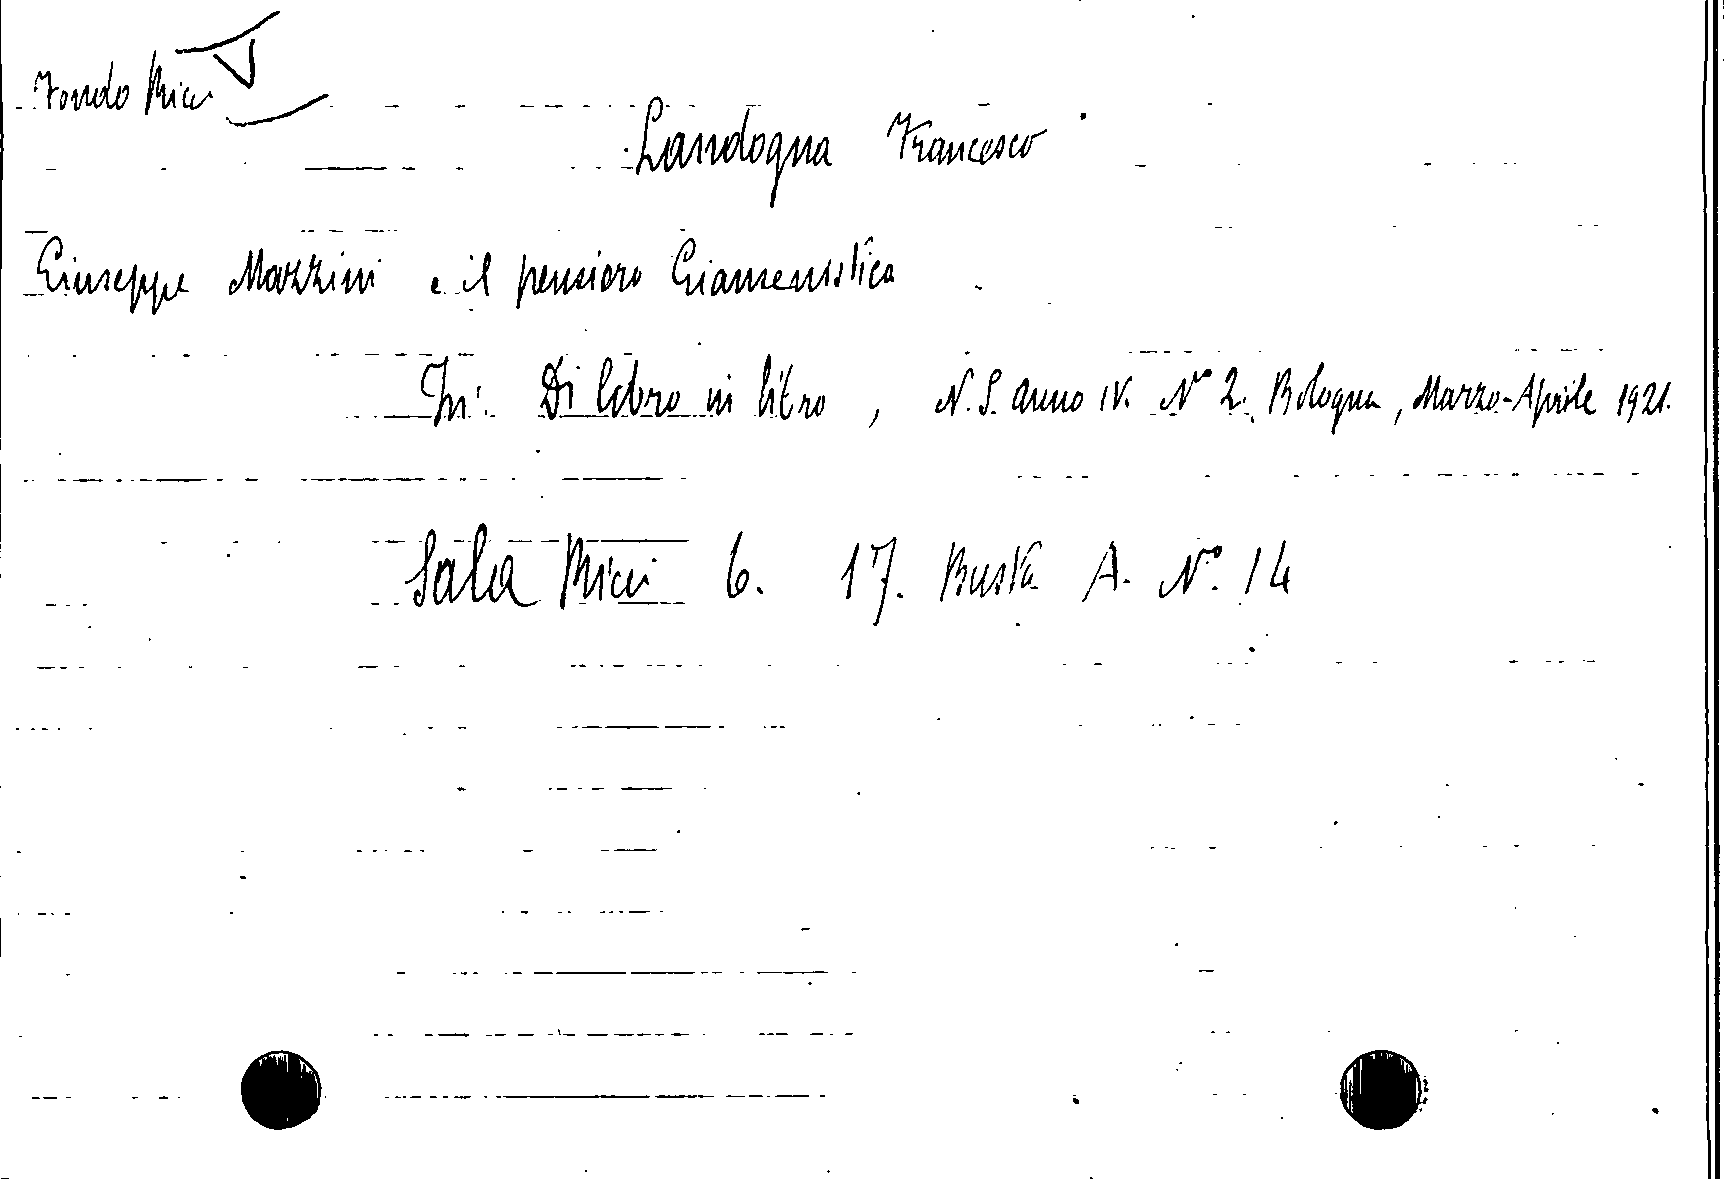 Fondo Ricci
Landogna Francesco
Giuseppe Mazzini e il pensiero Giansenistico
In: Di libro in libro, N.S. anno IV. N° 2. Bologna, Marzo-Aprile 1921.
Sala Ricci 6. 17. Busta A. N°. 14